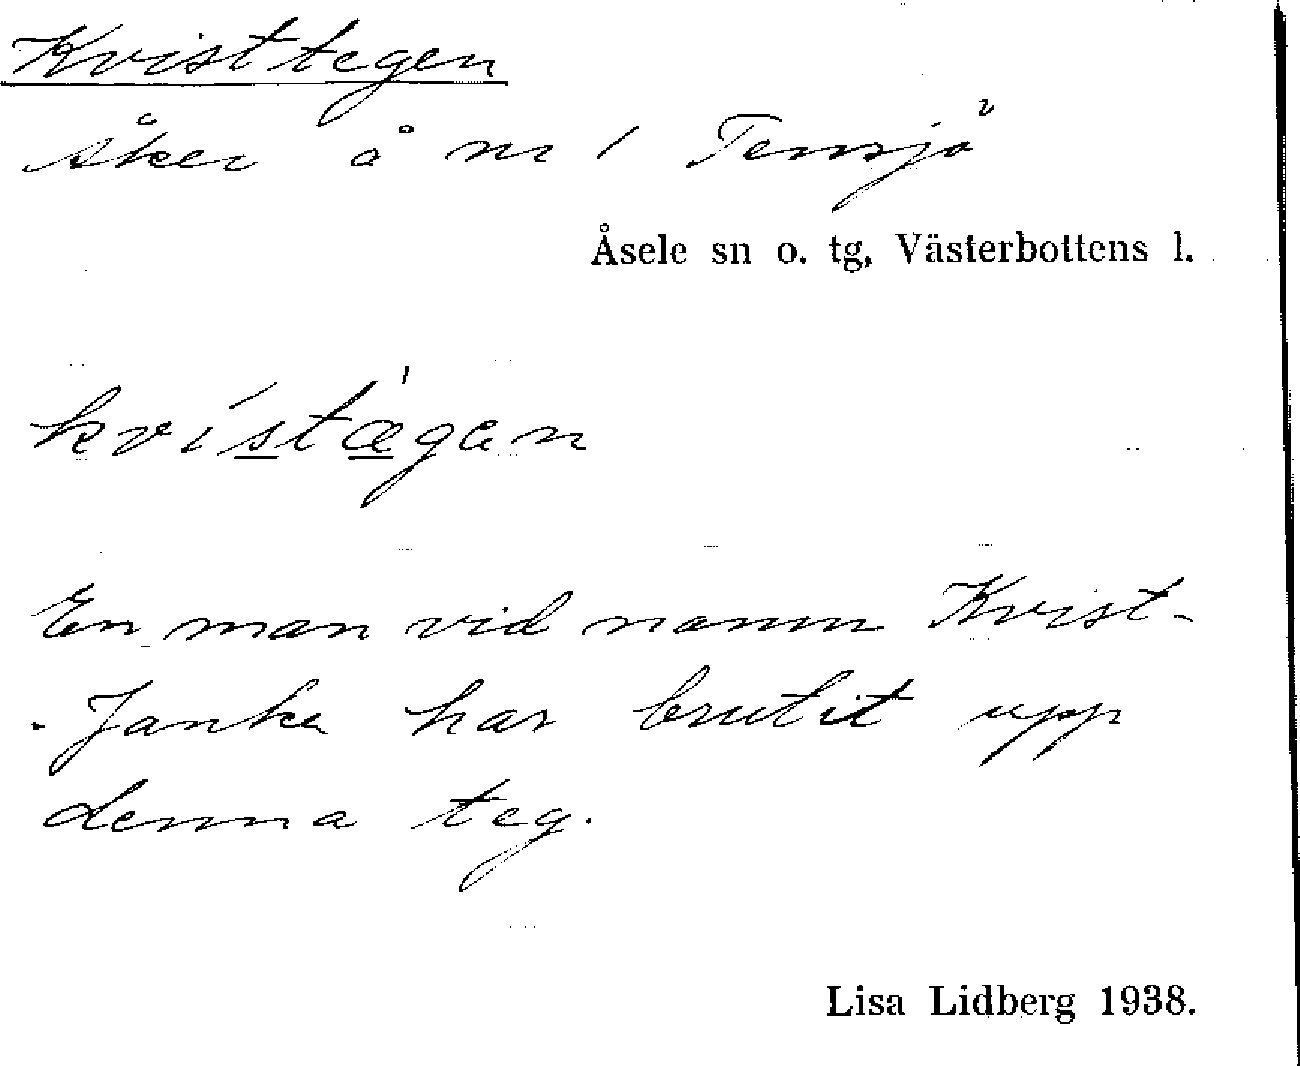 Kvisttegen
åker å nr 1 Tensjö
Åsele sn o. tg, Västerbottens l.
kvístæ̲̍gan
En man vid namn Kvist-
-Janke har brutit upp
denna teg.
Lisa Lidberg 1938.